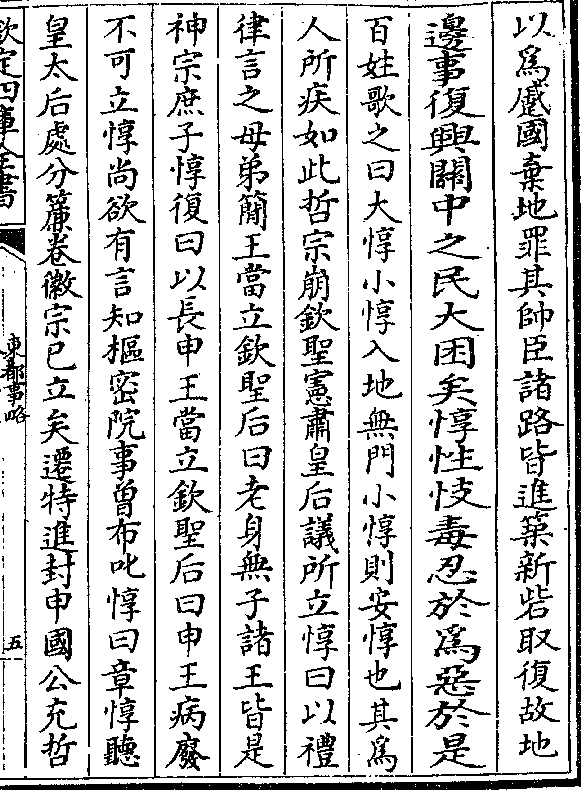 以為蹙國棄地罪其帥臣諸路皆進築新砦取復故地
邊事復興關中之民大困矣惇性忮毒忍於為惡於是
百姓歌之曰大惇小惇入地無門小惇則安惇也其為
人所疾如此哲宗崩欽聖憲肅皇后議所立惇曰以禮
律言之母弟簡王當立欽聖后曰老身無子諸王皆是
神宗庶子惇復曰以長申王當立欽聖后曰申王病廢
不可立惇尚欲有言知樞密院事曾布叱惇曰章惇聽
皇太后處分簾卷徽宗已立矣遷特進封申國公充哲
欽定四庫全書
東都事略
五